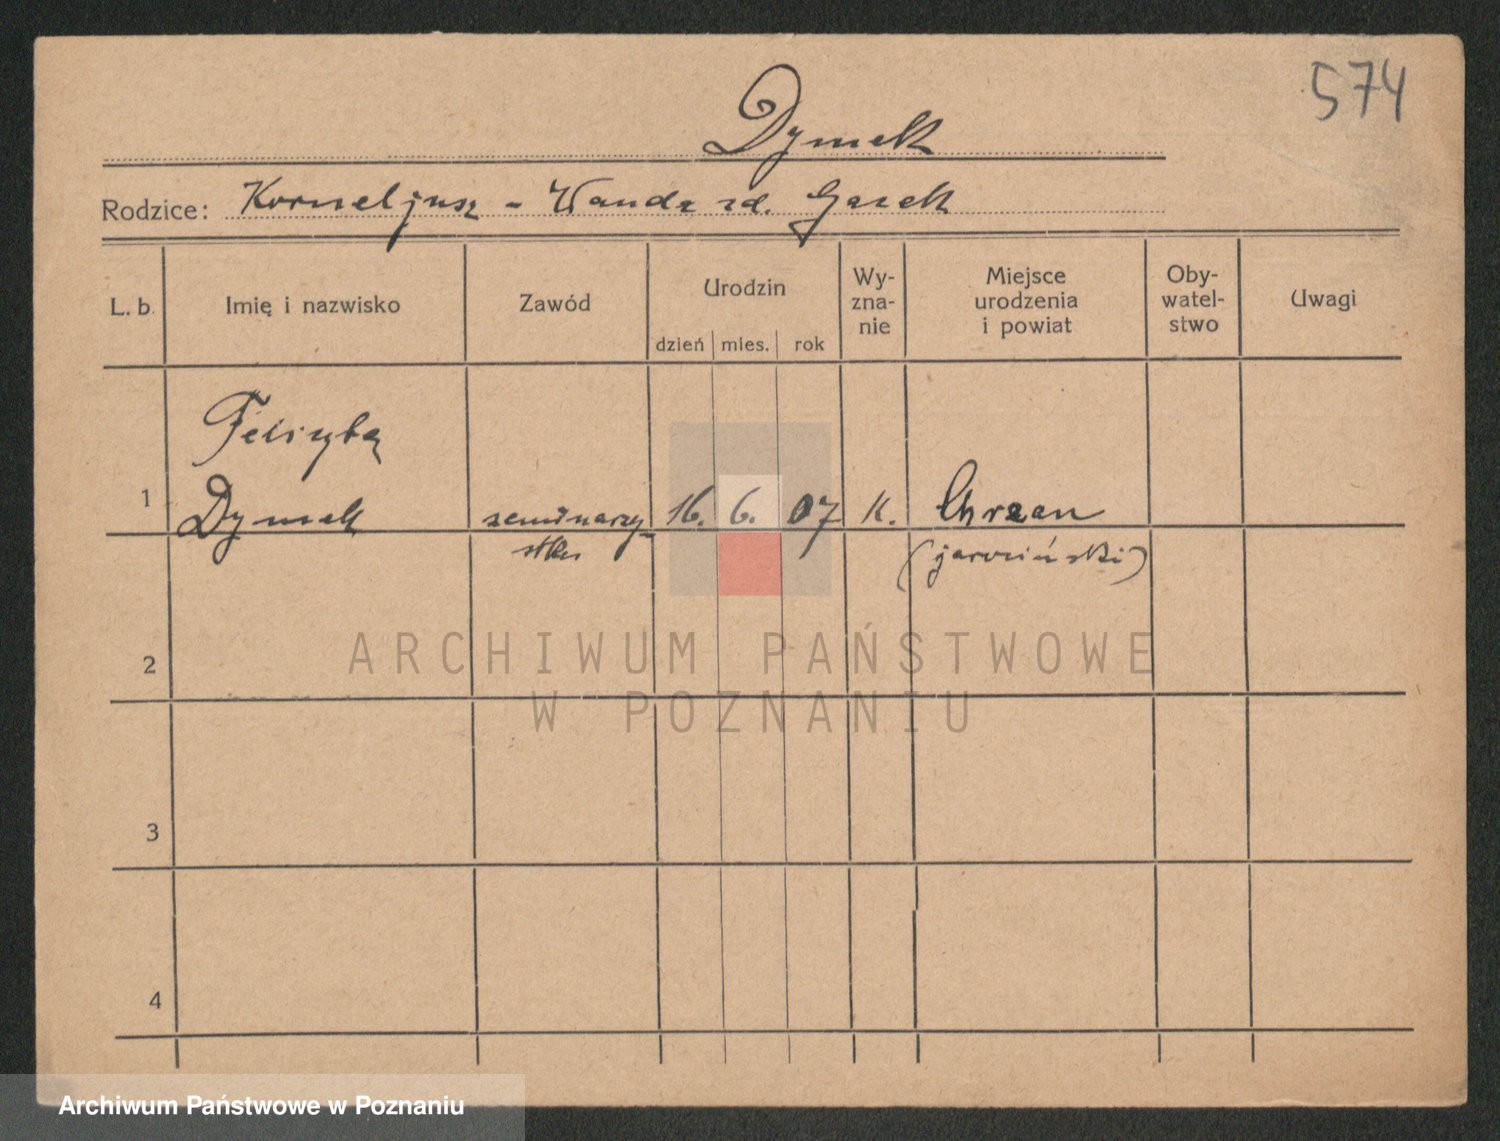 574
Dymek
Rodzice: Korneljusz - Wanda zd. Gasek
L. b. Imię i nazwisko Zawód Urodzin dzień mies. rok Wy-zna-nie Miejsce urodzenia i powiat Oby-watel-stwo Uwagi
Felicyta
1 Dymek seminarzy- 16. 6. 07 K. Chrzan
stka (jarociński)
2
ARCHIWUM PAŃSTWOWE
W POZNANIU
3
4
Archiwum Państwowe w Poznaniu